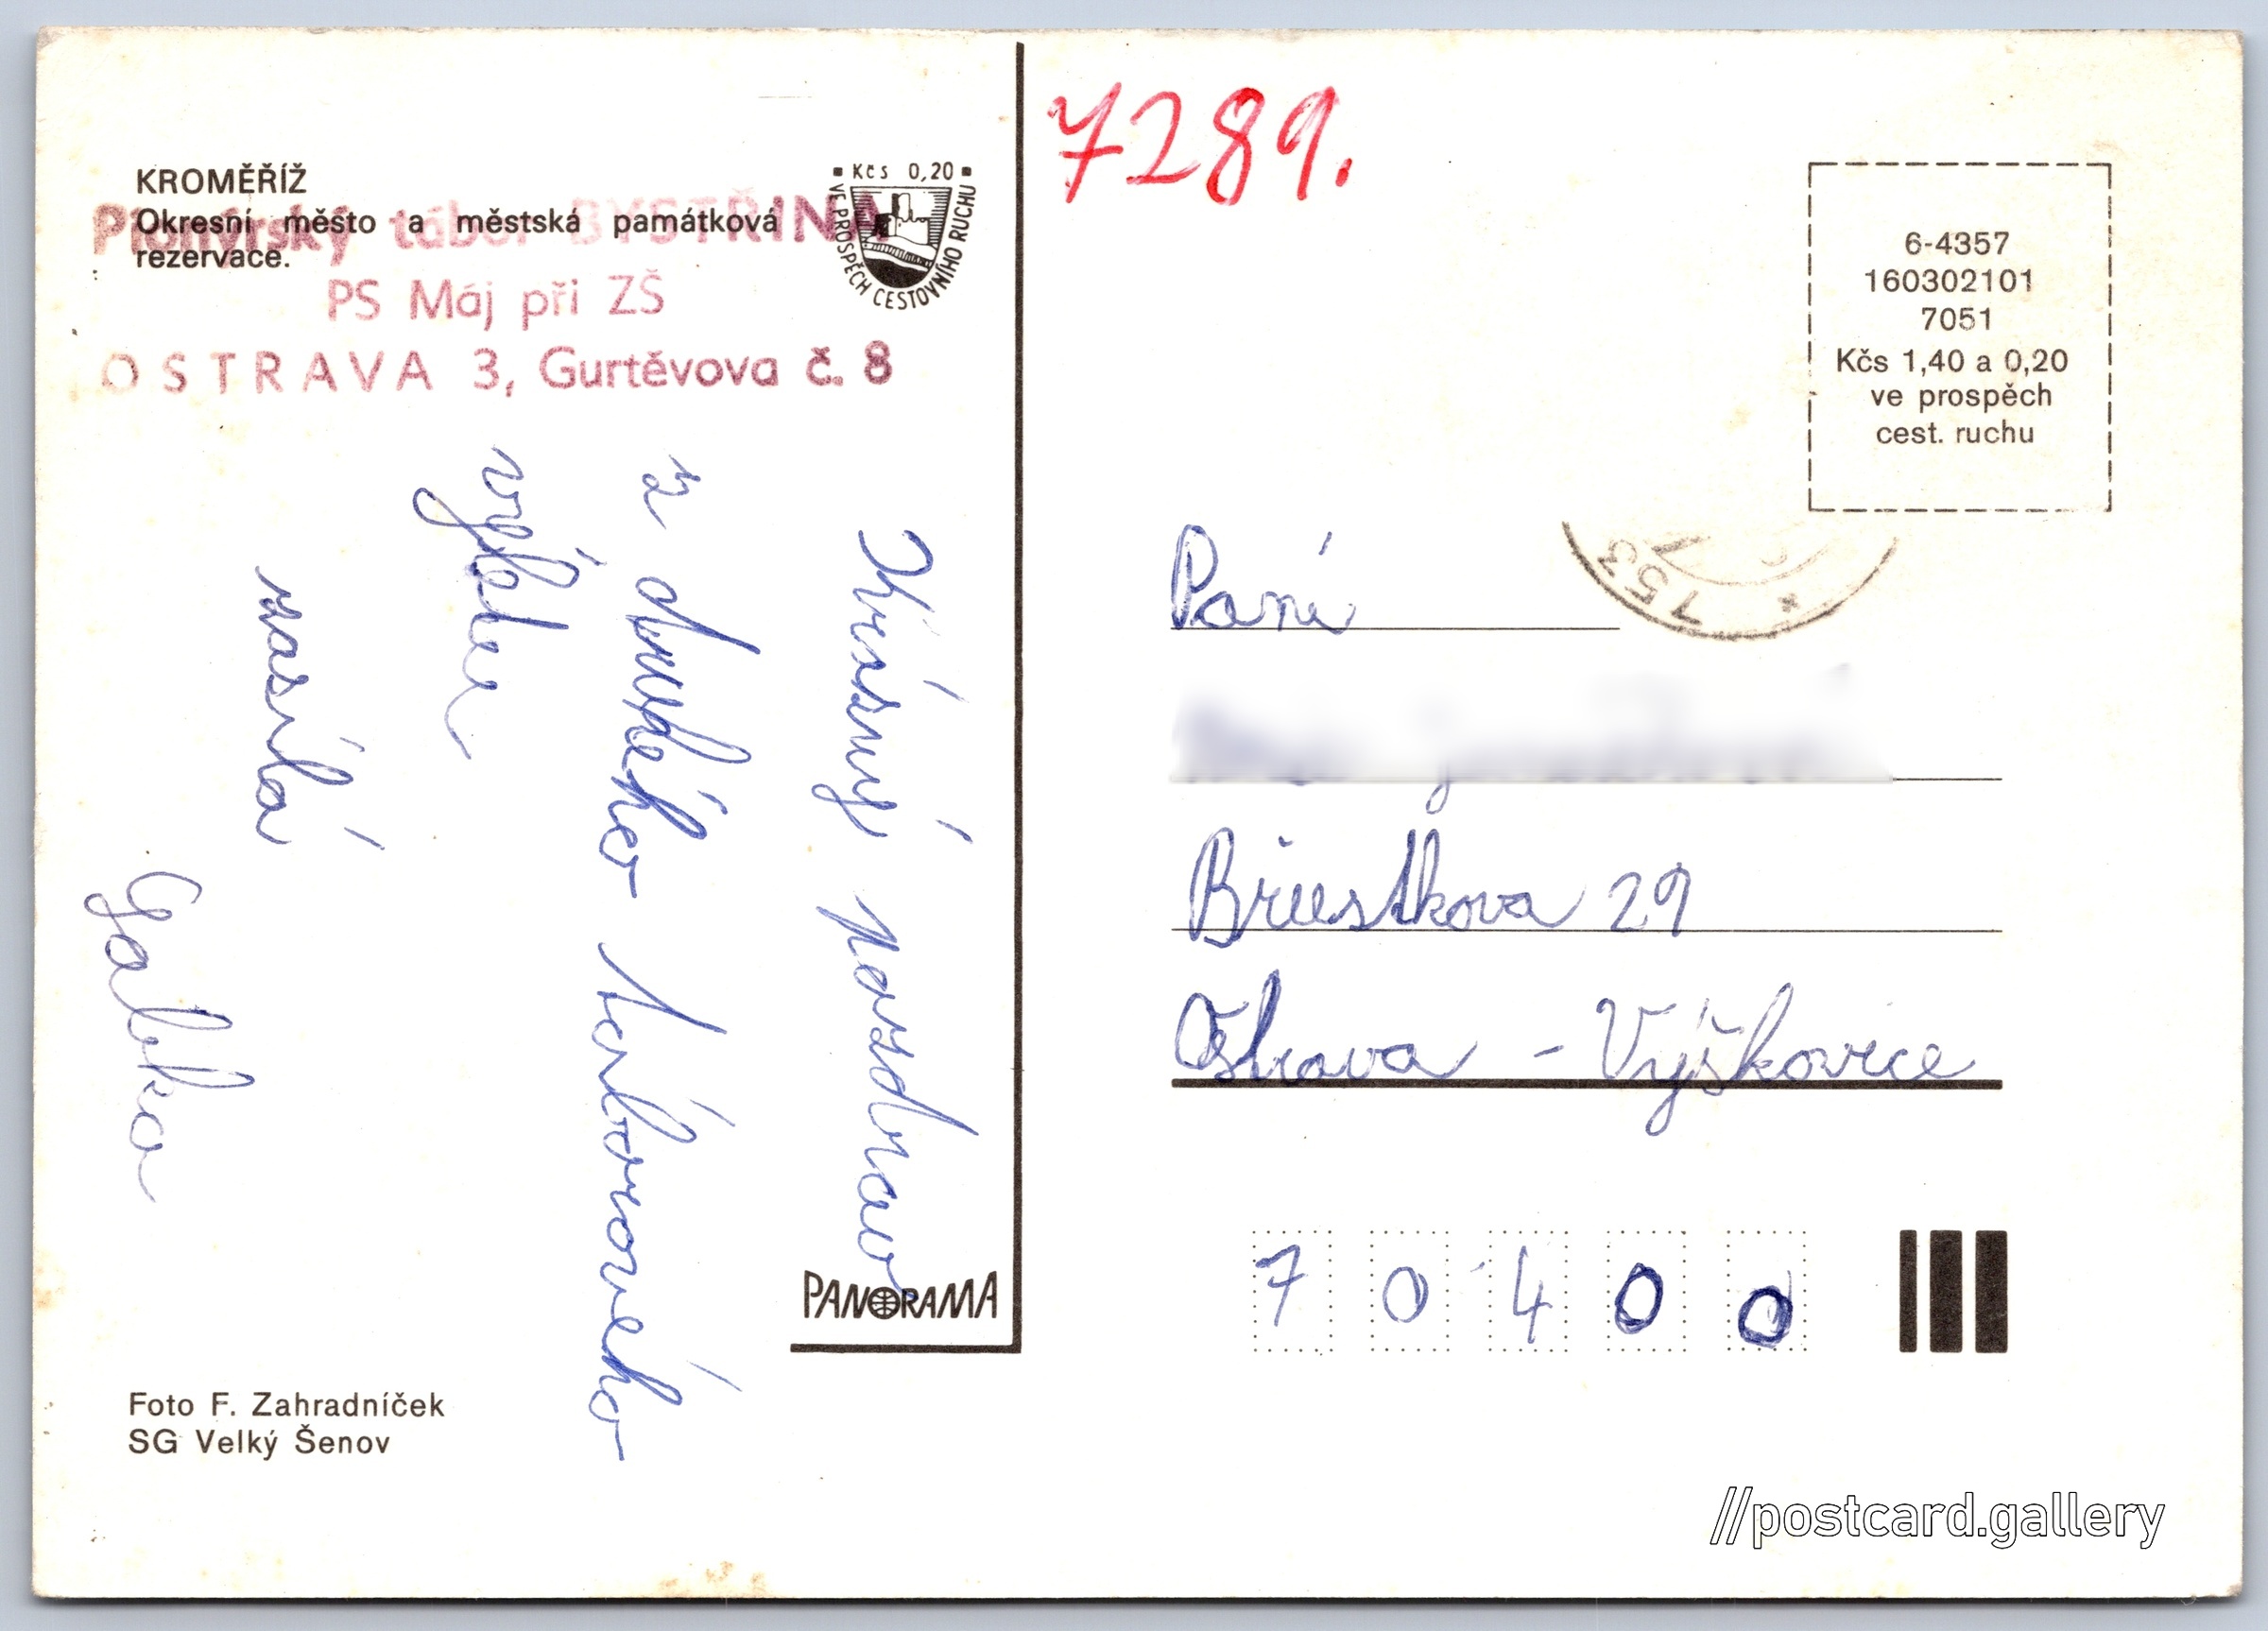 KROMĚŘÍŽ
Okresní město a městská památková
rezervace.
Kčs 0,20
VE PROSPĚCH CESTOVNÍHO RUCHU
Pionýrský tábor BYSTŘINA
PS Máj při ZŠ
OSTRAVA 3, Gurtěvova č. 8
Krásný pozdrav
z druhého táborového
výletu
zasílá
Gabka
PANORAMA
Foto F. Zahradníček
SG Velký Šenov
7289.
6-4357
160302101
7051
Kčs 1,40 a 0,20
ve prospěch
cest. ruchu
753
Paní
Břustkova 29
Ostrava - Výškovice
704 00
//postcard.gallery